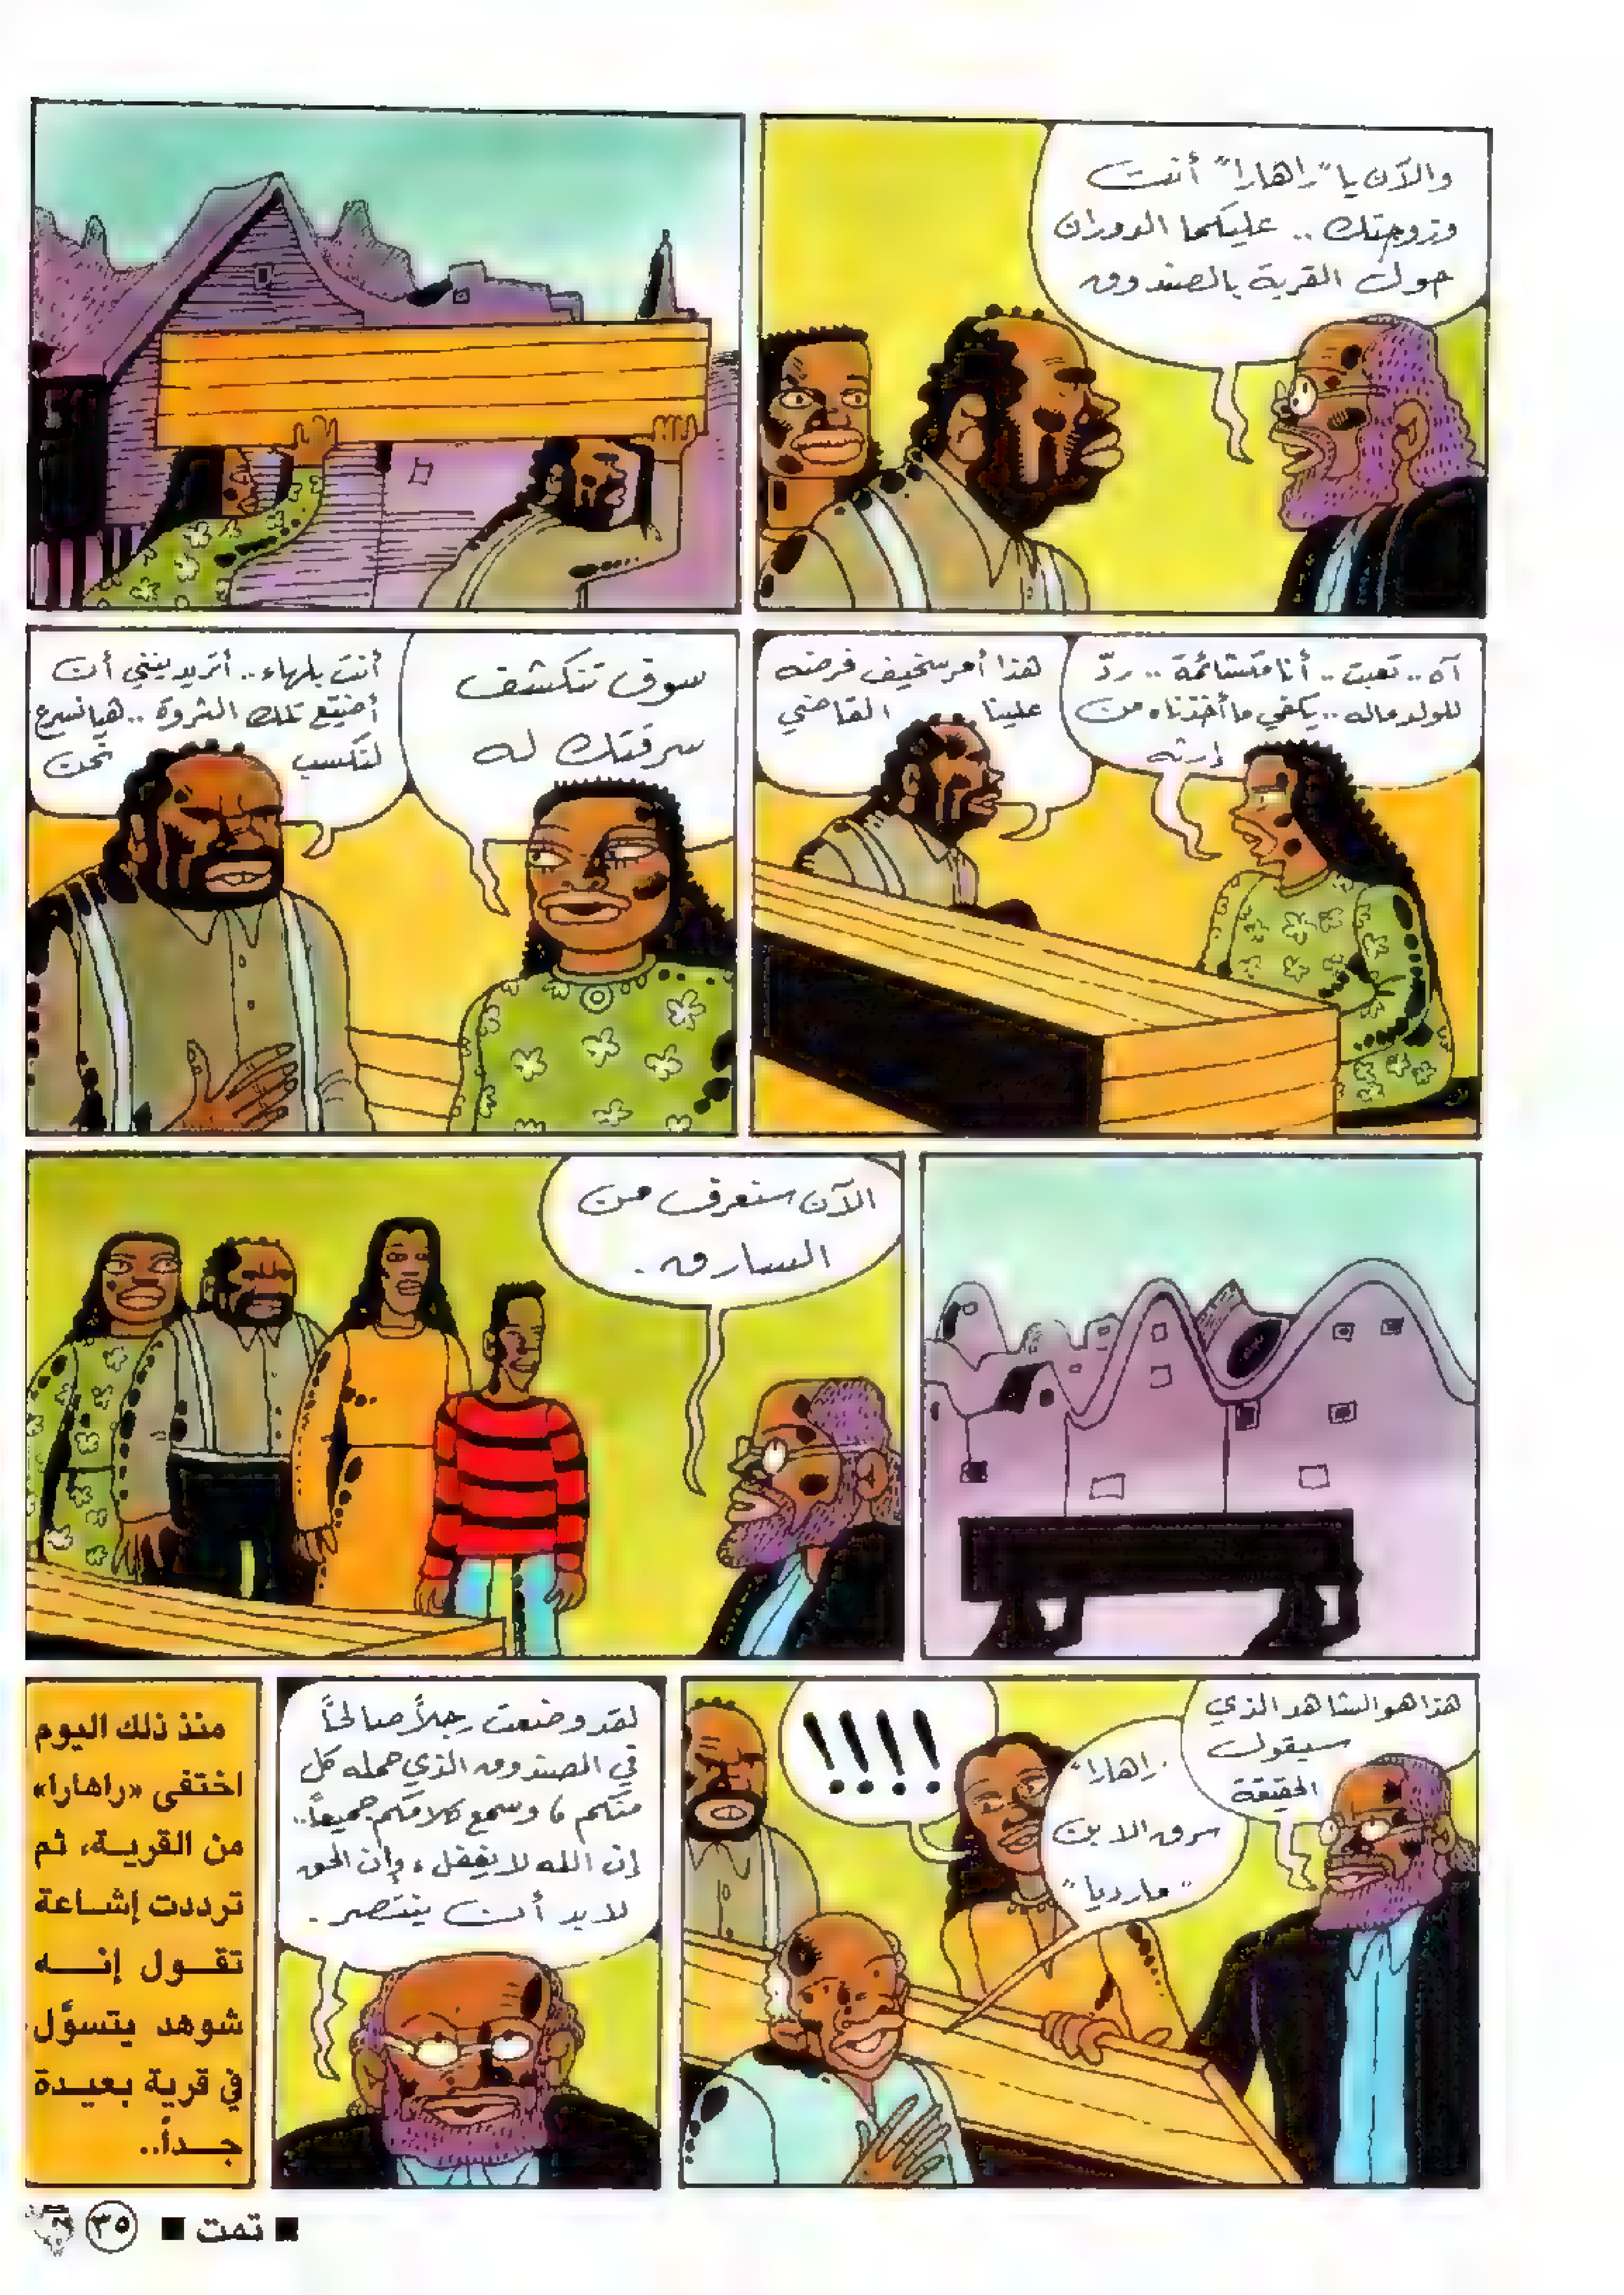 والآن يا "راهارا" أنت
وزوجتك .. عليكما الدوران
حول القرية بالصندوق
آه .. تعبت .. أنا متشائمة .. ردّ
للولد ماله .. يكفي ما أخذناه من
إرثه
هذا أمر سخيف فرضه
علينا القاضي
سوف تنكشف
سرقتك له
أنت بلهاء .. أتريدينني أن
أضيّع تلك الثروة .. هيا نسرع
لنكسب نحن
الآن سنعرف من
السارق .
هذا هو الشاهد الذي
سيقول
الحقيقة
"راهارا"
سرق الابن
"مارديا"
!!!!
لقد وضعت رجلاً صالحاً
في الصندوق الذي حمله كل
منكم ، وسمع كلامكم جميعاً..
إن الله لا يغفل ، وإن الحق
لابد أن ينتصر .
منذ ذلك اليوم
اختفى «راهارا»
من القرية، ثم
ترددت إشاعة
تقول إنه
شوهد يتسوَّل
في قرية بعيدة
جداً..
■ تمت ■ ٣٥